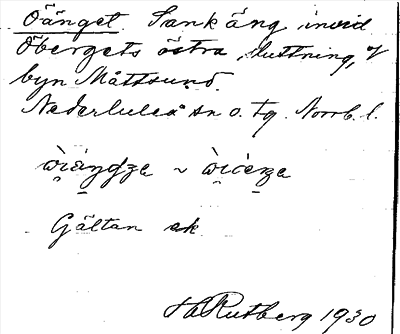 Öänget Sankäng invid
Öbergets östra sluttning,
byn Måttsund.
Nederluleå sn o. tg. Norrb. l.
~
Gältan ek
H Rutberg 1930